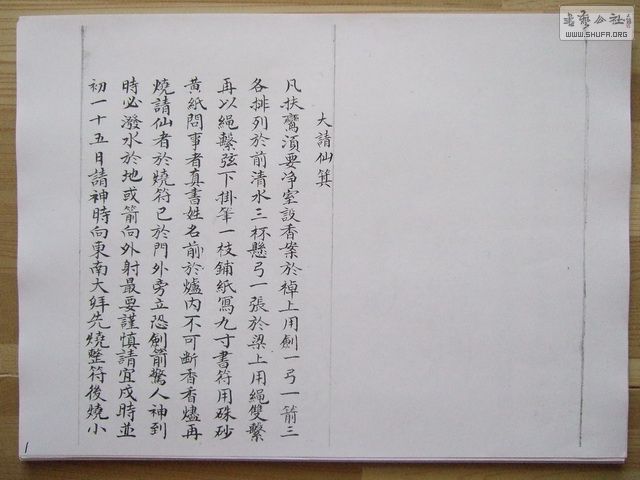 大請仙箕
凡扶鸞須要净室設香案於棹上用劍一弓一箭三
各排列於前清水三杯懸弓一張於梁上用繩雙繫
再以繩繫弦下掛筆一枝鋪紙寫九寸書符用硃砂
黄紙問事者真書姓名前於爐内不可斷香香燼再
燒請仙者於燒符已於門外旁立恐劍箭驚人神到
時必潑水於地或箭向外射最要謹慎請宜戌時並
初一十五日請神時向東南大拜先燒整符後燒小
1
書藝公社
WWW.SHUFA.ORG